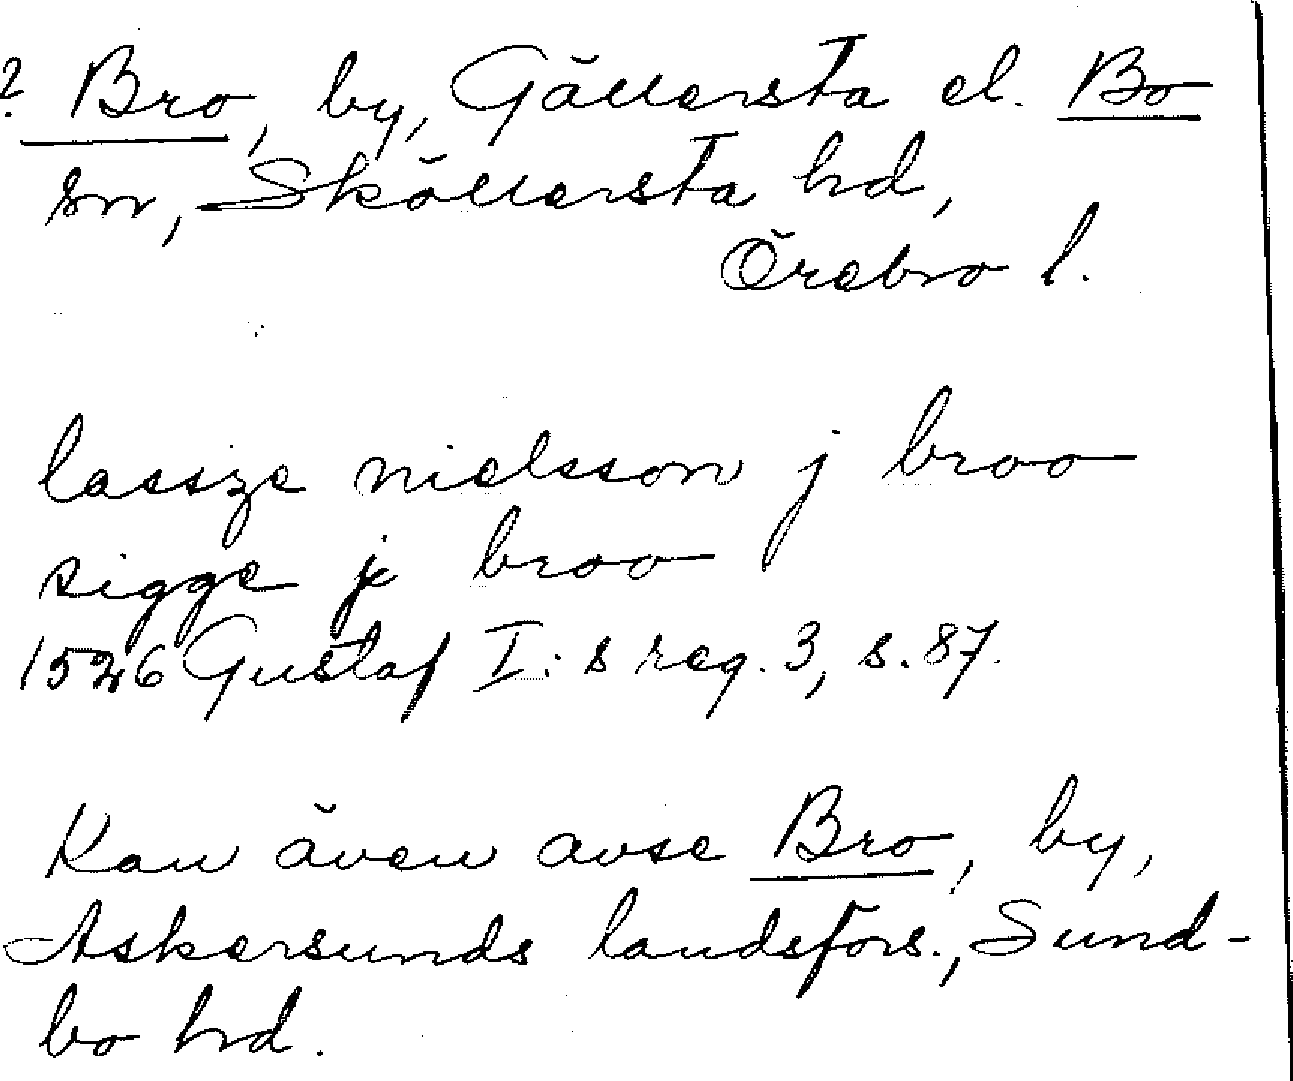 ? Bro, by, Gällersta el. Bo
sn, Sköllersta hd,
Örebro l.
lassze nielsson j broo
sigge j broo
1526 Gustaf I:s reg. 3, s. 87.
Kan även avse Bro, by,
Askersunds landsförs., Sund-
bo hd.